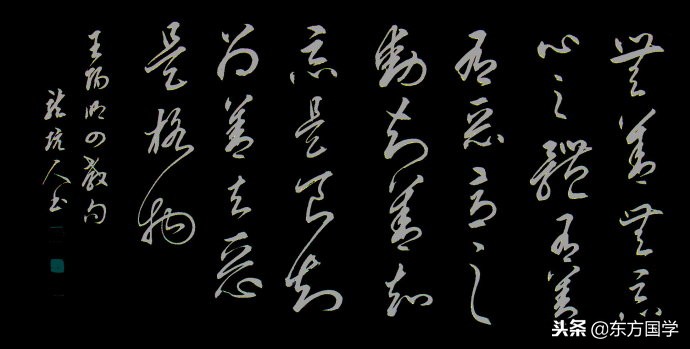 無善無惡
心之體有善
有惡意之
動知善知
惡是良知
為善去惡
是格物
王陽明四教句
人书
头条 @东方国学